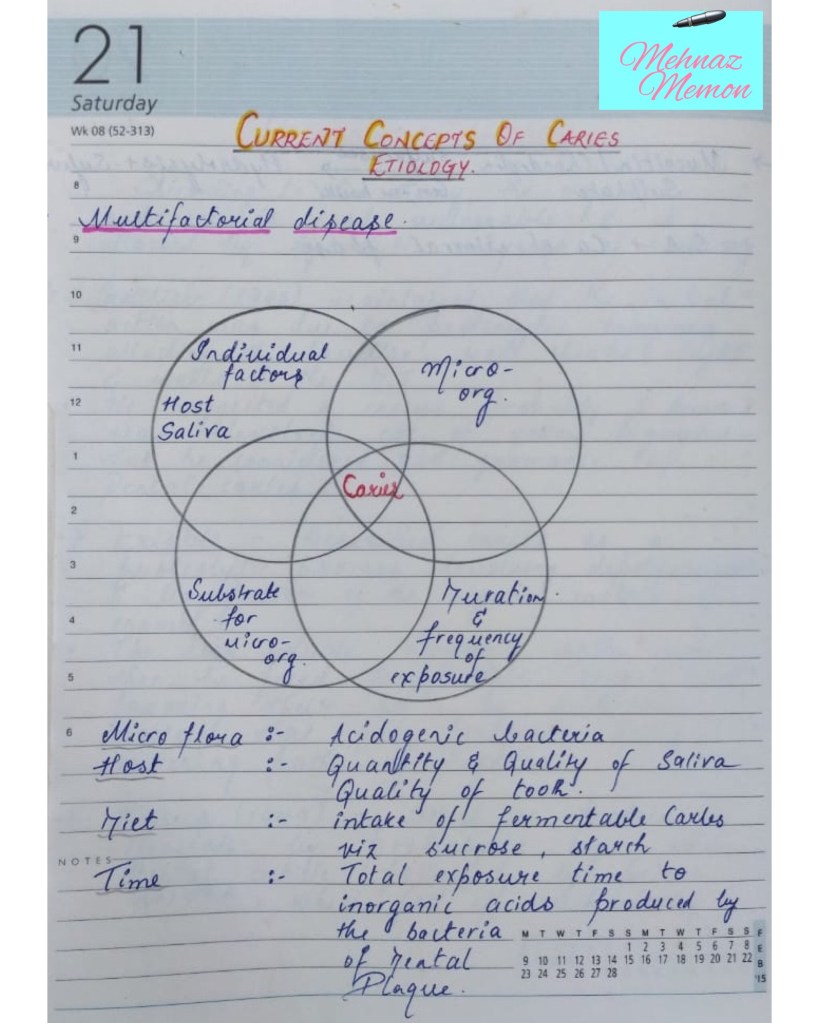 21
Saturday
Wk 08 (52-313)
Mehnaz
Memon
CURRENT CONCEPTS OF CARIES
ETIOLOGY.
8
Multifactorial disease.
9
10
11
12
1
2
3
4
5
6
Individual
factors
Host
Saliva
Micro-
org.
Caries
Substrate
for
micro-
org.
Duration
&
frequency
of
exposure
Micro flora :- Acidogenic bacteria
Host :- Quantity & Quality of Saliva
Quality of tooh.
Diet :- intake of fermentable Carbs
viz sucrose, starch
NOTES
Time :- Total exposure time to
inorganic acids produced by
the bacteria
of Dental
Plaque.
M T W T F S S M T W T F S S
1 2 3 4 5 6 7 8
9 10 11 12 13 14 15 16 17 18 19 20 21 22
23 24 25 26 27 28
FEB
'15